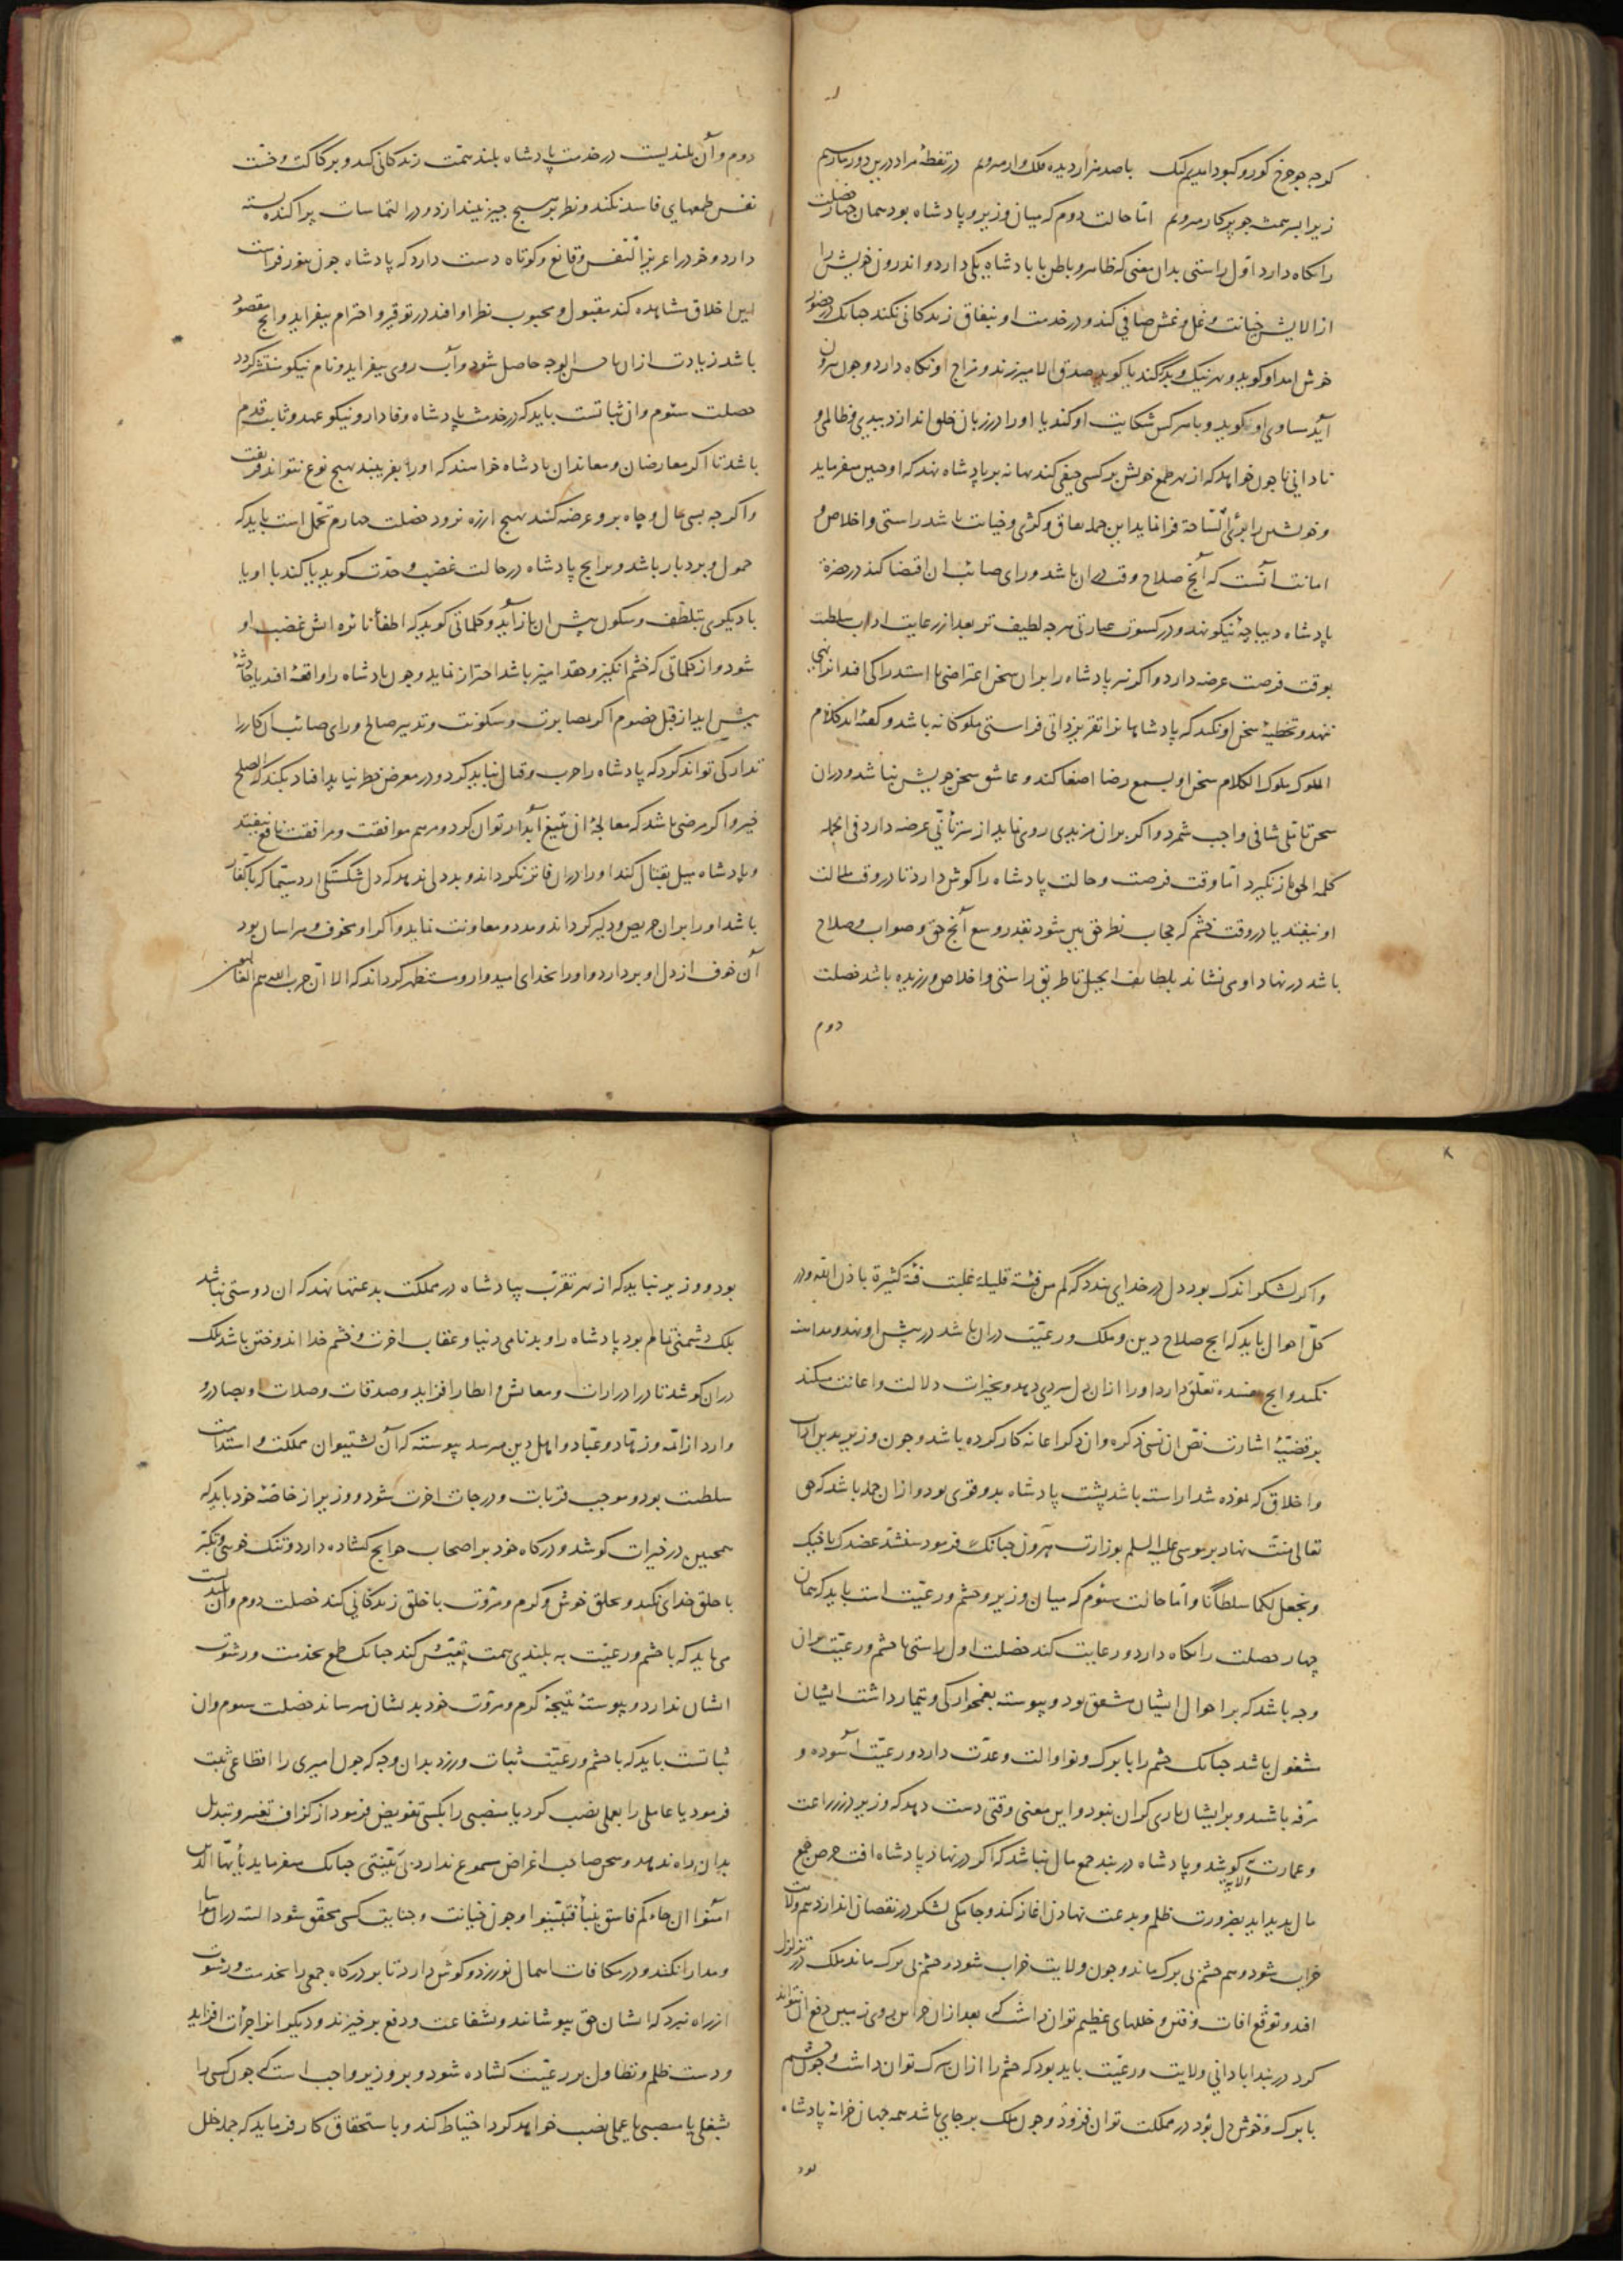 کرچه جو چرخ کوژ و کبود امدیم لیک با صد هزار دیده فلک وار میرویم در نقطۀ مراد درین دور ما رسیم
زیرا بسر همیشه جو پرکار میرویم اما حالت دوم که میان وزیر و پادشاه بود همان چهار خصلت
را نکاه دارد اول راستی بدان معنی که ظاهر و باطن با پادشاه یکی دارد و اندرون خویش را
از الایش خیانت و غل و غش صافی کند و در خدمت او بنفاق زندکانی نکند جنانک در حضور
خوش امد او کوید و هر نیک و بد که کند یا کوید صدق الامیر زند و مزاج او نکاه دارد و جون بیرون
آید مساوی او کوید و با هر کس شکایت او کند یا او را در زبان خلق اندازد ببدی و ظالمی و
نادانی یا جون خواهد که از بهر طمع خویش بر کسی حیفی کند بهانه بر پادشاه نهد که او جنین میفرماید
و خویشتن را بری الساحة فرا نماید این جمله نفاق و کژی و خیانت باشد راستی و اخلاص و
امانت آنست که آنج صلاح وقت دران باشد و رای صائب ان اقتضا کند در حضرة
پادشاه دیباجۀ نیکو نهد و در کسوت عبارتی هر جه لطیف تر بعد از رعایت اداب سلطنت
بوقت فرصت عرضه دارد و اکر نیز پادشاه را بران سخن اعتراضی یا استدراکی افتد انرا بهی
ننهد و تخطیۀ سخن او نکند که پادشاهانرا تفریز ذاتی فراستی ملوکانه باشد و کفته اند کلام
الملوک ملوک الکلام سخن او بسمع رضا اصغا کند و عاشق سخن خویش نباشد و دران
سخن تاملی شافی واجب شمرد و اکر بران مزیدی روی نماید از سر تأنی عرضه دارد فی الجمله
کلمة الحق باز نکیرد اما وقت فرصت و حالت پادشاه را کوش دارد تا در وقت ملالت
او نیفتد یا در وقت خشم که حجاب نظر حق بین شود بقدر وسع آنج حق و صواب و صلاح
باشد در نهاد او می نشاند بلطایف الحیل تا طریق راستی و اخلاص ورزیده باشد خصلت
دوم
دوم و آن بلندیست در خدمت پادشاه بلند همت زندکانی کند و بر رکاکت و خست
نفس طمعهای فاسد نکند و نظر بر هیج جیز نیندازد و در التماسات پراکنده بسته
دارد و خود را عزیز النفس و قانع و کوتاه دست دارد که پادشاه جون بنور فراست
این اخلاق مشاهده کند مقبول و محبوب نظر او افتد در توقیر و احترام بیفزاید و انج مقصود
باشد زیادت از ان باحسن الوجه حاصل شود و آب روی بیفزاید و نام نیکو منتشر کردد
خصلت سئوم وان ثباتست باید که در خدمت پادشاه وفادار و نیکو عهد و ثابت قدم
باشد تا اکر معارضان و معاندان پادشاه خواهند که او را بفریبند بهیج نوع نتوانند فریفت
و اکر جه بسی مال و جاه برو عرضه کنند بهیج از ره نرود خصلت جهارم تحمل است باید که
حمول و بردبار باشد و هر انج پادشاه در حالت غضب و حدت بکوید یا کند با او یا
با دیکری بتلطف و سکون پیش ان باز آید و کلماتی کوید که اطفأ نائره اتش غضب او
شود و از کلماتی که خشم انکیز و حقد امیز باشد احتراز نماید و جون پادشاه را واقعۀ افتد یا حادثۀ
پیش اید از قبل خصوم اکر بمصابرت و سکونت و تدبیر صالح و رای صائب ان کار را
تدارکی تواند کرد که پادشاه را حرب و قتال نباید کرد و در معرض خطر نیاید افتاد بکند که الصلح
خیر و اکر مرضی باشد که معالجۀ ان بتیغ آبدار توان کرد و مرهم موافقت و مرافقت نافع نیفتد
و پادشاه میل بقتال کند او را دران فاتر نکرداند و بددلی ندهد که دل شکستکی ارد سیما که با کفار
باشد او را بران حریص و دلیر کرداند و مدد و معاونت نماید و اکر او مخوف و هراسان بود
آن خوف از دل او بردارد و او را بخدای امیدوار و مستظهر کرداند که الا ان حزب الله هم الغالبون
و اکر لشکر اندک بود دل در خدای بندد که کم من فئة قلیلة غلبت فئة کثیرة باذن الله و در
کل احوال باید که انج صلاح دین و ملک و رعیت دران باشد در پیش او نهد و مداهنه
نکند و انج بمفسده تعلق دارد او را ازان دل سردی دهد و بخیرات دلالت و اعانت میکند
بر قضیۀ اشارت نص ان نسی ذکره وان ذکر اعانه کار کرده باشد و جون وزیر بدین اداب
و اخلاق که نموده شد اراسته باشد پشت پادشاه بدو قوی بود و از ان جمله باشد که حق
تعالی منت نهاد بر موسی علیه السلم بوزارت هرون جنانک فرمود سنشد عضدک باخیک
و نجعل لکما سلطاناً و اما حالت سئوم که میان وزیر و حشم و رعیت است باید که همان
چهار خصلت را نکاه دارد و رعایت کند خصلت اول راستی با حشم و رعیت بران
وجه باشد که بر احوال ایشان مشفق بود و پیوسته بغمخوارکی و تیمار داشت ایشان
مشغول باشد جنانک حشم را با برک و نوا و الت و عدت دارد و رعیت آسوده و
مرفه باشند و بر ایشان باری کران نبود و این معنی وقتی دست دهد که وزیر در زراعت
و عمارت ولایة کوشد و پادشاه در بند جمع مال نباشد که اکر در نهاد پادشاه افت حرص جمع
مال بدید اید بضرورت ظلم و بدعت نهادن اغاز کند و جامکی لشکر در نقصان اندازد هم ولایت
خراب شود و هم حشم بی برک ماند و جون ولایت خراب شود و حشم بی برک ماند ملک در تزلزل
افتد و توقع افات و فتن و خللهای عظیم توان داشت که بعد ازان خزاین روی زمین دفع ان نتواند
کرد در بند ابادانی ولایت و رعیت باید بود که حشم را ازان برک توان داشت و جون حشم
با برک و خوش دل بود در مملکت توان فزود و جون ملک بر جای باشد همه جهان خزانه پادشاه
بود
بود و وزیر نباید که از بهر تقرب بپادشاه در مملکت بدعتها نهد که ان دوستی نباشد
بلک دشمنی تمام بود پادشاه را و بدنامی دنیا و عقاب اخرت و خشم خدا اندوختن باشد بلک
دران کوشد تا در ادرارات و معایش و انظار افزاید و صدقات و صلات او بصادر و
وارد از ائمه و زهاد و عباد و اهل دین میرسد پیوسته که آن پشتیوان مملکت و استدامت
سلطنت بود و موجب قربات و درجات اخرت شود و وزیر از خاصۀ خود باید که
همجنین در خیرات کوشد و درکاه خود بر اصحاب حوایج کشاده دارد و تنک خویی و تکبر
با خلق خدای نکند و بخلق خوش و کرم و مروت با خلق زندکانی کند خصلت دوم و آن بلندیست
می باید که با حشم و رعیت به بلندی همت تعیش کند جنانک طمع بخدمت و رشوت
ایشان ندارد و پیوسته نتیجۀ کرم و مروت خود بدیشان میرساند خصلت سوم وان
ثباتست باید که با حشم و رعیت ثبات ورزد بدان وجه که جون امیری را اقطاعی مثبت
فرمود یا عاملی را بعملی نصب کرد یا منصبی را بکسی تفویض فرمود از کزاف تغییر و تبدیل
بدان راه ندهد و سخن صاحب اغراض مسموع ندارد بی تبینی جنانک میفرماید یا ایها الذین
آمنوا ان جاءکم فاسق بنبأ فتبینوا و جون خیانت و جنایت کسی محقق شود البته دران محابا
و مدارا نکند و در مکافات اهمال نورزد و کوش دارد تا بر درکاه جمعی را بخدمت و رشوت
از راه نبرد که ایشان حق بپوشانند و بشفاعت و دفع برخیزند و دیکرانرا جرأت افزاید
و دست ظلم و تطاول بر رعیت کشاده شود و بر وزیر واجب است که جون کسی را
بشغلی یا منصبی یا عملی نصب خواهد کرد احتیاط کند و باستحقاق کار فرماید که جمله خلل